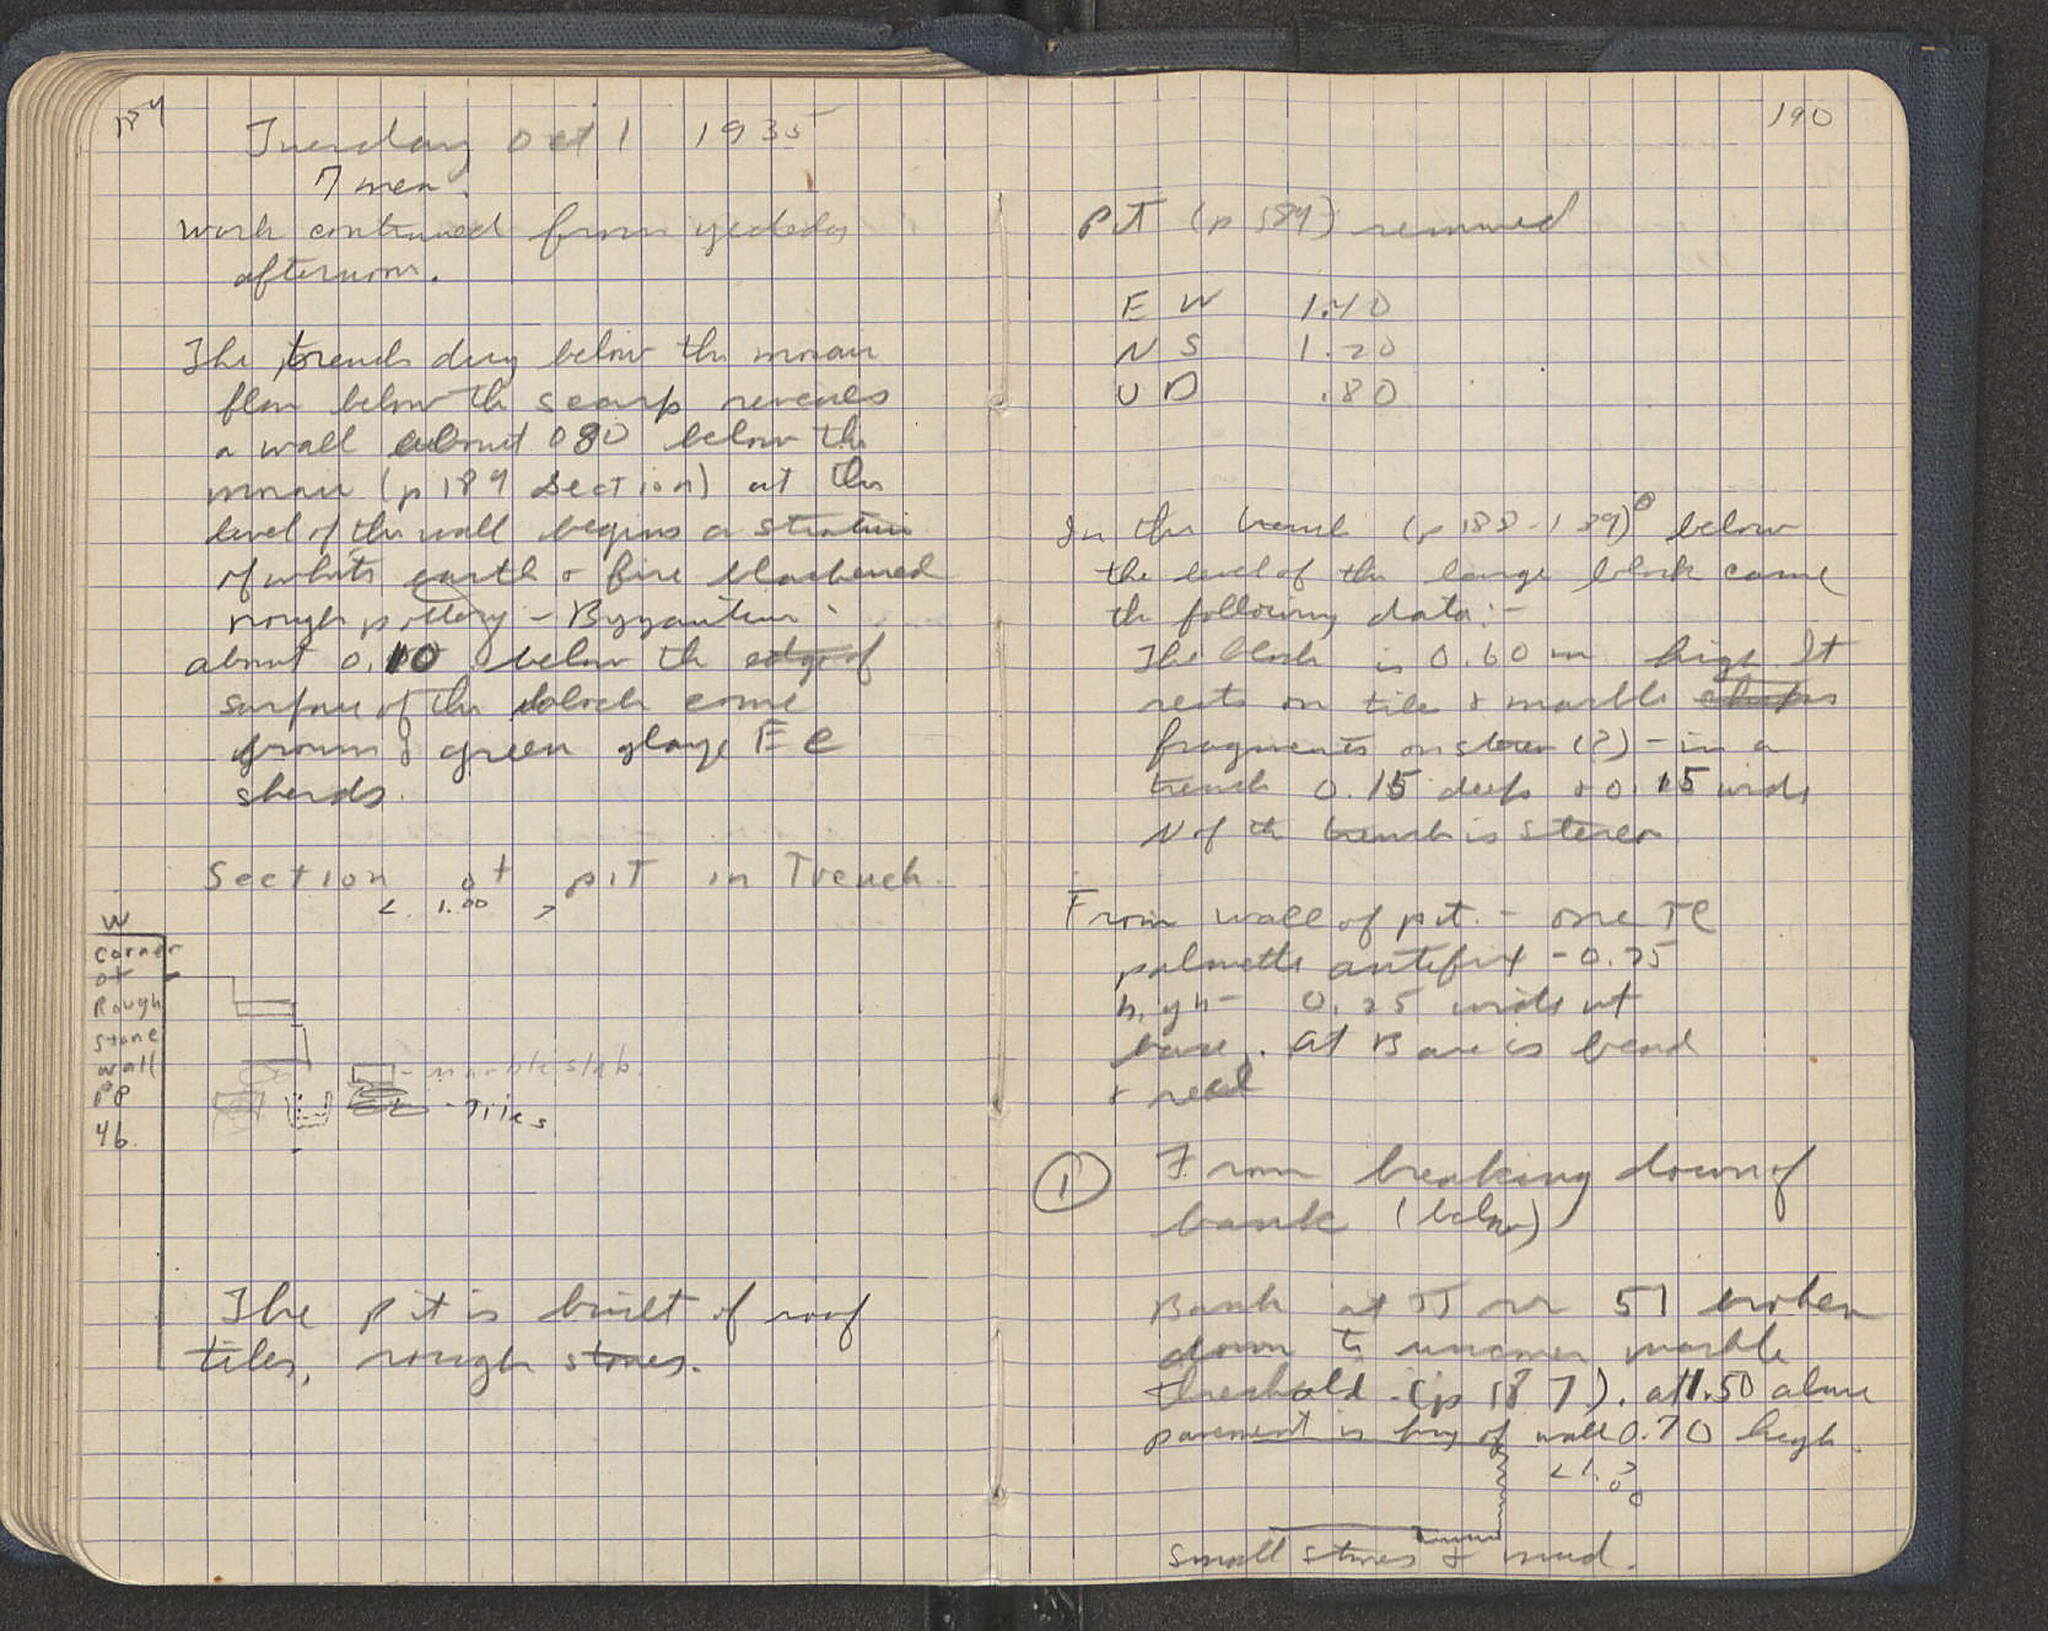 189
Tuesday Oct 1 1935
7 men.
Work continued from yesterday
afternoon.
The trench dug below the mosaic
floor below the scarp reveals
a wall about 080 below the
mosaic (p 189 Section) at the
level of the wall begins a stratum
of white earth & fire blackened
rough pottery - Byzantine.
about 0.10 below the edge of
surface of the block come
brown & green glaze
sherds.
Section of pit in Trench.
< 1.00 >
W
corner
of
Rough
stone
wall
PP
46.
- marble slab.
- Tiles
The pit is built of roof
tiles, rough stones.
190
Pit (p 189) removed
E W 1.40
N S 1.20
U D .80
In the trench (p 188-189) below
the level of the large block came
the following data:-
The block is 0.60 m high It
rests on tile & marble chips
fragments on stereo (?) - in a
trench 0.15 deep & 0.15 wide
N of the trench is stereo
From wall of pit. - one TC
palmette antefix - 0.25
high - 0.25 wide at
base. At Base is bead
& reel
1 From breaking down of
bank (below)
Bank at 51 broken
down to uncover marble
threshold (p 187). at 1.50 above
pavement is frag of wall 0.70 high.
< 1.00 >
small stones & mud.